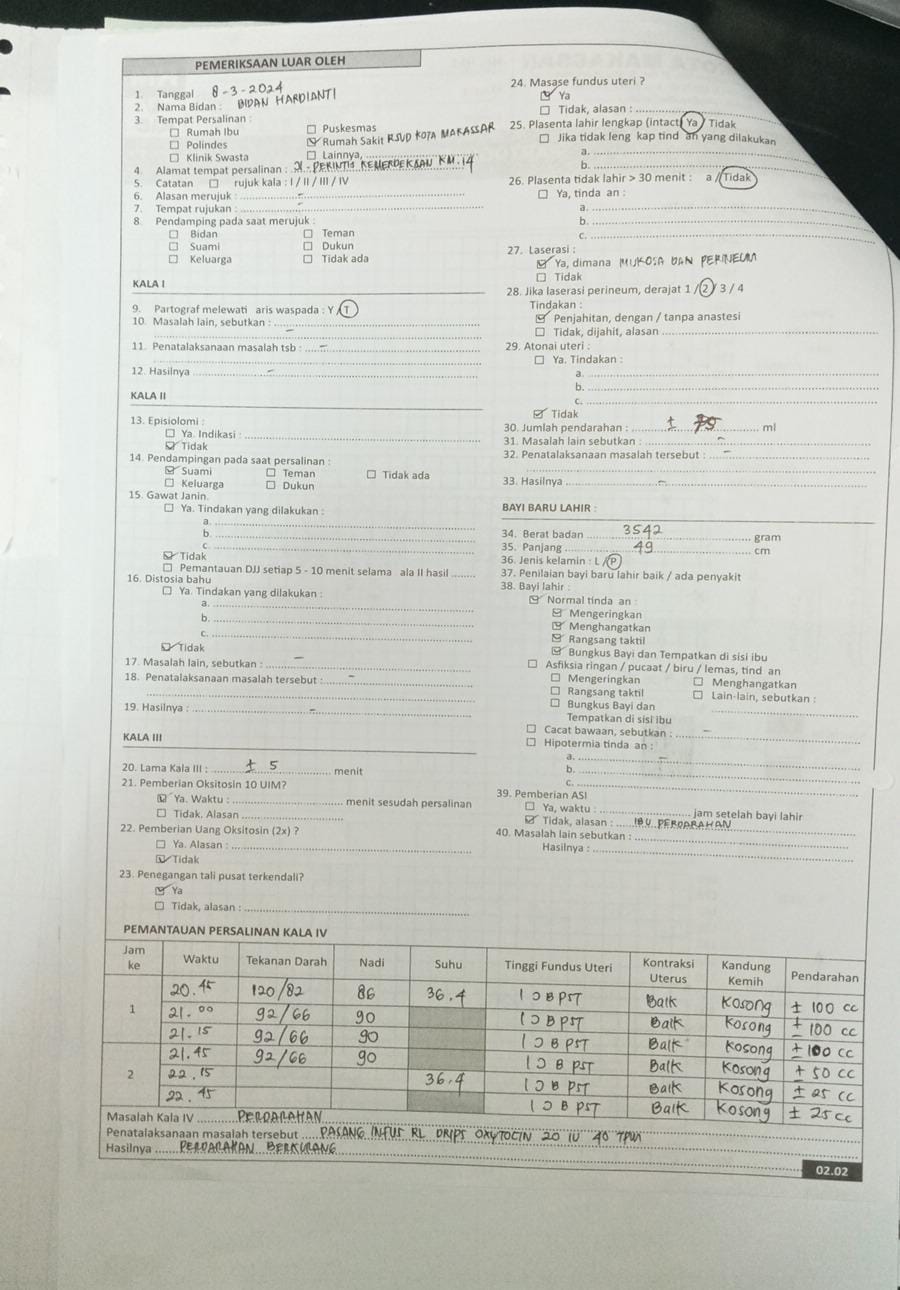 PEMERIKSAAN LUAR OLEH
1. Tanggal 8-3-2024
2. Nama Bidan : BIDAN HARDIANTI
3. Tempat Persalinan :
☐ Rumah Ibu ☐ Puskesmas
☐ Polindes ☑ Rumah Sakit RSUD KOTA MAKASSAR
☐ Klinik Swasta ☐ Lainnya, ..........
4. Alamat tempat persalinan : Jl. PERINTIS KEMERDEKAAN KM.14
5. Catatan ☐ rujuk kala : I / II / III / IV
6. Alasan merujuk : .......... -
7. Tempat rujukan : .......... -
8. Pendamping pada saat merujuk :
☐ Bidan ☐ Teman
☐ Suami ☐ Dukun
☐ Keluarga ☐ Tidak ada
KALA I
9. Partograf melewati aris waspada : Y / T
10. Masalah lain, sebutkan : .......... -
11. Penatalaksanaan masalah tsb : .... -
12. Hasilnya .......... -
KALA II
13. Episiolomi :
☐ Ya. Indikasi : ..........
☑ Tidak
14. Pendampingan pada saat persalinan :
☑ Suami ☐ Teman ☐ Tidak ada
☐ Keluarga ☐ Dukun
15. Gawat Janin.
☐ Ya. Tindakan yang dilakukan :
a. ..........
b. ..........
c. ..........
☑ Tidak
☐ Pemantauan DJJ setiap 5 - 10 menit selama ala II hasil .......
16. Distosia bahu
☐ Ya. Tindakan yang dilakukan :
a. ..........
b. ..........
c. ..........
☑ Tidak
17. Masalah lain, sebutkan : .... -
18. Penatalaksanaan masalah tersebut : .... -
19. Hasilnya : .......... -
KALA III
20. Lama Kala III : .... ± 5 .... menit
21. Pemberian Oksitosin 10 UIM?
☑ Ya. Waktu : .......... menit sesudah persalinan
☐ Tidak. Alasan ..........
22. Pemberian Uang Oksitosin (2x) ?
☐ Ya. Alasan : ..........
☑ Tidak
23. Penegangan tali pusat terkendali?
☑ Ya
☐ Tidak, alasan : ..........
24. Masase fundus uteri ?
☑ Ya
☐ Tidak, alasan : ..........
25. Plasenta lahir lengkap (intact) Ya / Tidak
☐ Jika tidak leng kap tind an yang dilakukan
a. ..........
b. ..........
26. Plasenta tidak lahir > 30 menit : a / Tidak
☐ Ya, tinda an :
a. ..........
b. ..........
c. ..........
27. Laserasi :
☑ Ya, dimana MUKOSA DAN PERINEUM
☐ Tidak
28. Jika laserasi perineum, derajat 1 / 2 / 3 / 4
Tindakan :
☑ Penjahitan, dengan / tanpa anastesi
☐ Tidak, dijahit, alasan ..........
29. Atonai uteri :
☐ Ya. Tindakan :
a. ..........
b. ..........
c. ..........
☑ Tidak
30. Jumlah pendarahan : .... ± .... ml
31. Masalah lain sebutkan : .......... -
32. Penatalaksanaan masalah tersebut : .... -
33. Hasilnya .......... -
BAYI BARU LAHIR :
34. Berat badan .... 3542 .... gram
35. Panjang .... 49 .... cm
36. Jenis kelamin : L / P
37. Penilaian bayi baru lahir baik / ada penyakit
38. Bayi lahir :
☑ Normal tinda an :
☑ Mengeringkan
☑ Menghangatkan
☑ Rangsang taktil
☑ Bungkus Bayi dan Tempatkan di sisi ibu
☐ Asfiksia ringan / pucaat / biru / lemas, tind an
☐ Mengeringkan ☐ Menghangatkan
☐ Rangsang taktil ☐ Lain-lain, sebutkan :
☐ Bungkus Bayi dan ..........
Tempatkan di sisi ibu
☐ Cacat bawaan, sebutkan : .... -
☐ Hipotermia tinda an :
a. .......... -
b. ..........
c. ..........
39. Pemberian ASI
☐ Ya, waktu : .......... jam setelah bayi lahir
☑ Tidak, alasan : .... IBU PERDARAHAN
40. Masalah lain sebutkan : ..........
Hasilnya : ..........
PEMANTAUAN PERSALINAN KALA IV
Jam ke Waktu Tekanan Darah Nadi Suhu Tinggi Fundus Uteri Kontraksi Uterus Kandung Kemih Pendarahan
1 20.45 120/82 86 36.4 1 J B PST Baik Kosong ± 100 cc
21.00 92/66 90 1 J B PST Baik Kosong ± 100 cc
21.15 92/66 90 1 J B PST Baik Kosong ± 100 cc
21.45 92/66 90 1 J B PST Baik Kosong ± 50 cc
2 22.15 36.4 1 J B PST Baik Kosong ± 25 cc
22.45 1 J B PST Baik Kosong ± 25 cc
Masalah Kala IV .......... PERDARAHAN
Penatalaksanaan masalah tersebut .... PASANG INFUS RL DRIPS OXYTOCIN 20 IU 40 TPM
Hasilnya .... PERDARAHAN BERKURANG
02.02